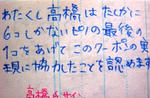 わたくし高橋はたしかに
6コしかないピノの最後の
1つをあげてこのクーポンの実
現に協力したことを認めます
高橋 サイン